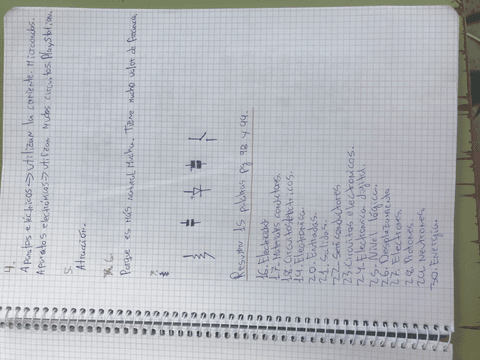 4.
Aparatos eléctricos → utilizan la corriente. Microondas.
Aparatos electrónicos → utilizan muchos circuitos. PlayStation
5.
Atracción.
6.
Porque es más
Tiene mucho valor de
7.
Resumir 15 palabras pg 98 y 99.
16. Electricidad
17. Materiales conductores.
18. Circuitos eléctricos.
19. Electrónica.
20. Entradas.
21. Salidas.
22. Semiconductores
23. Circuitos electronicos.
24. Electronica digital.
25. Nivel lógico.
26. Desplazamiento
27. Electrones.
28. Protones
29. Neutrones
30. Energía.